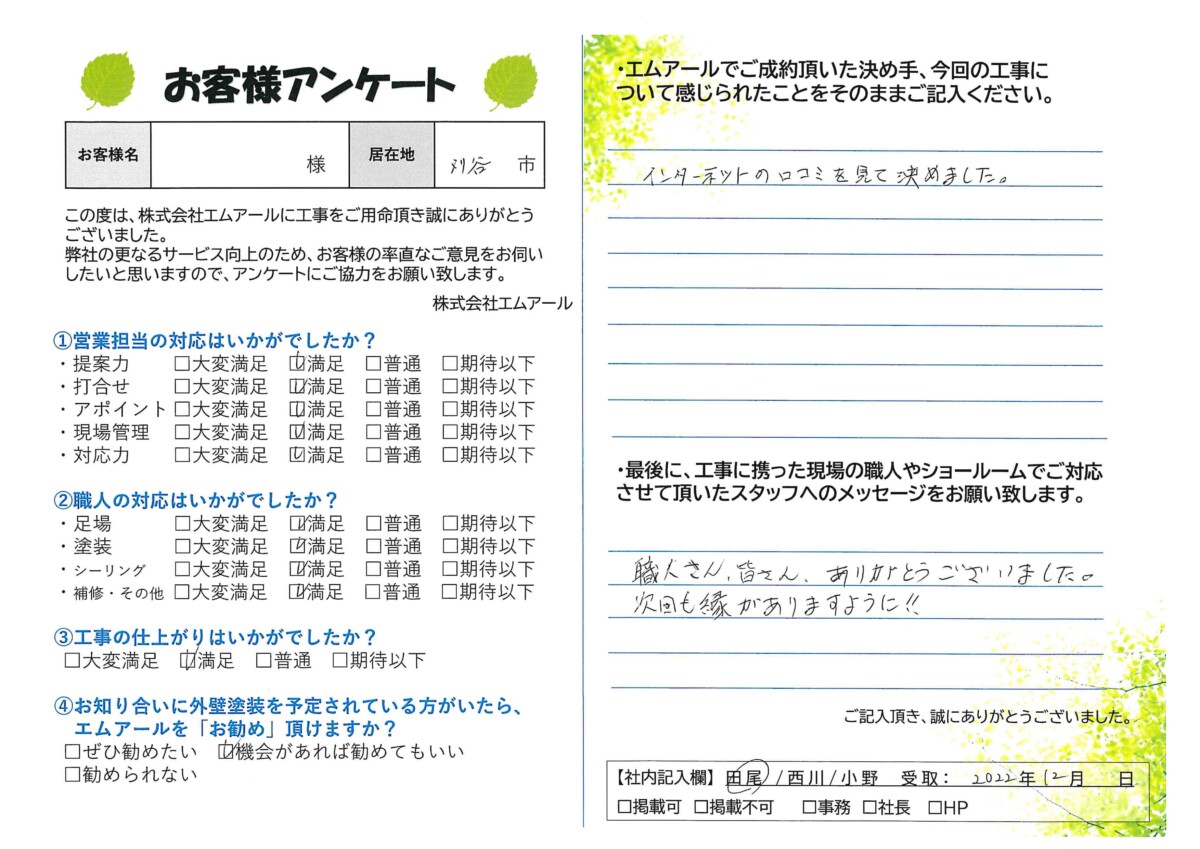 お客様アンケート
お客様名 様 居在地 刈谷 市
この度は、株式会社エムアールに工事をご用命頂き誠にありがとう
ございました。
弊社の更なるサービス向上のため、お客様の率直なご意見をお伺い
したいと思いますので、アンケートにご協力をお願い致します。
株式会社エムアール
①営業担当の対応はいかがでしたか？
・提案力 □大変満足 ☑満足 □普通 □期待以下
・打合せ □大変満足 ☑満足 □普通 □期待以下
・アポイント □大変満足 ☑満足 □普通 □期待以下
・現場管理 □大変満足 ☑満足 □普通 □期待以下
・対応力 □大変満足 ☑満足 □普通 □期待以下
②職人の対応はいかがでしたか？
・足場 □大変満足 ☑満足 □普通 □期待以下
・塗装 □大変満足 ☑満足 □普通 □期待以下
・シーリング □大変満足 ☑満足 □普通 □期待以下
・補修・その他 □大変満足 ☑満足 □普通 □期待以下
③工事の仕上がりはいかがでしたか？
□大変満足 ☑満足 □普通 □期待以下
④お知り合いに外壁塗装を予定されている方がいたら、
エムアールを「お勧め」頂けますか？
□ぜひ勧めたい ☑機会があれば勧めてもいい
□勧められない
・エムアールでご成約頂いた決め手、今回の工事に
ついて感じられたことをそのままご記入ください。
インターネットの口コミを見て決めました。
・最後に、工事に携った現場の職人やショールームでご対応
させて頂いたスタッフへのメッセージをお願い致します。
職人さん、皆さん、ありがとうございました。
次回も縁がありますように!!
ご記入頂き、誠にありがとうございました。
【社内記入欄】 田尾/西川/小野 受取： 2022年 12月 日
□掲載可 □掲載不可 □事務 □社長 □HP